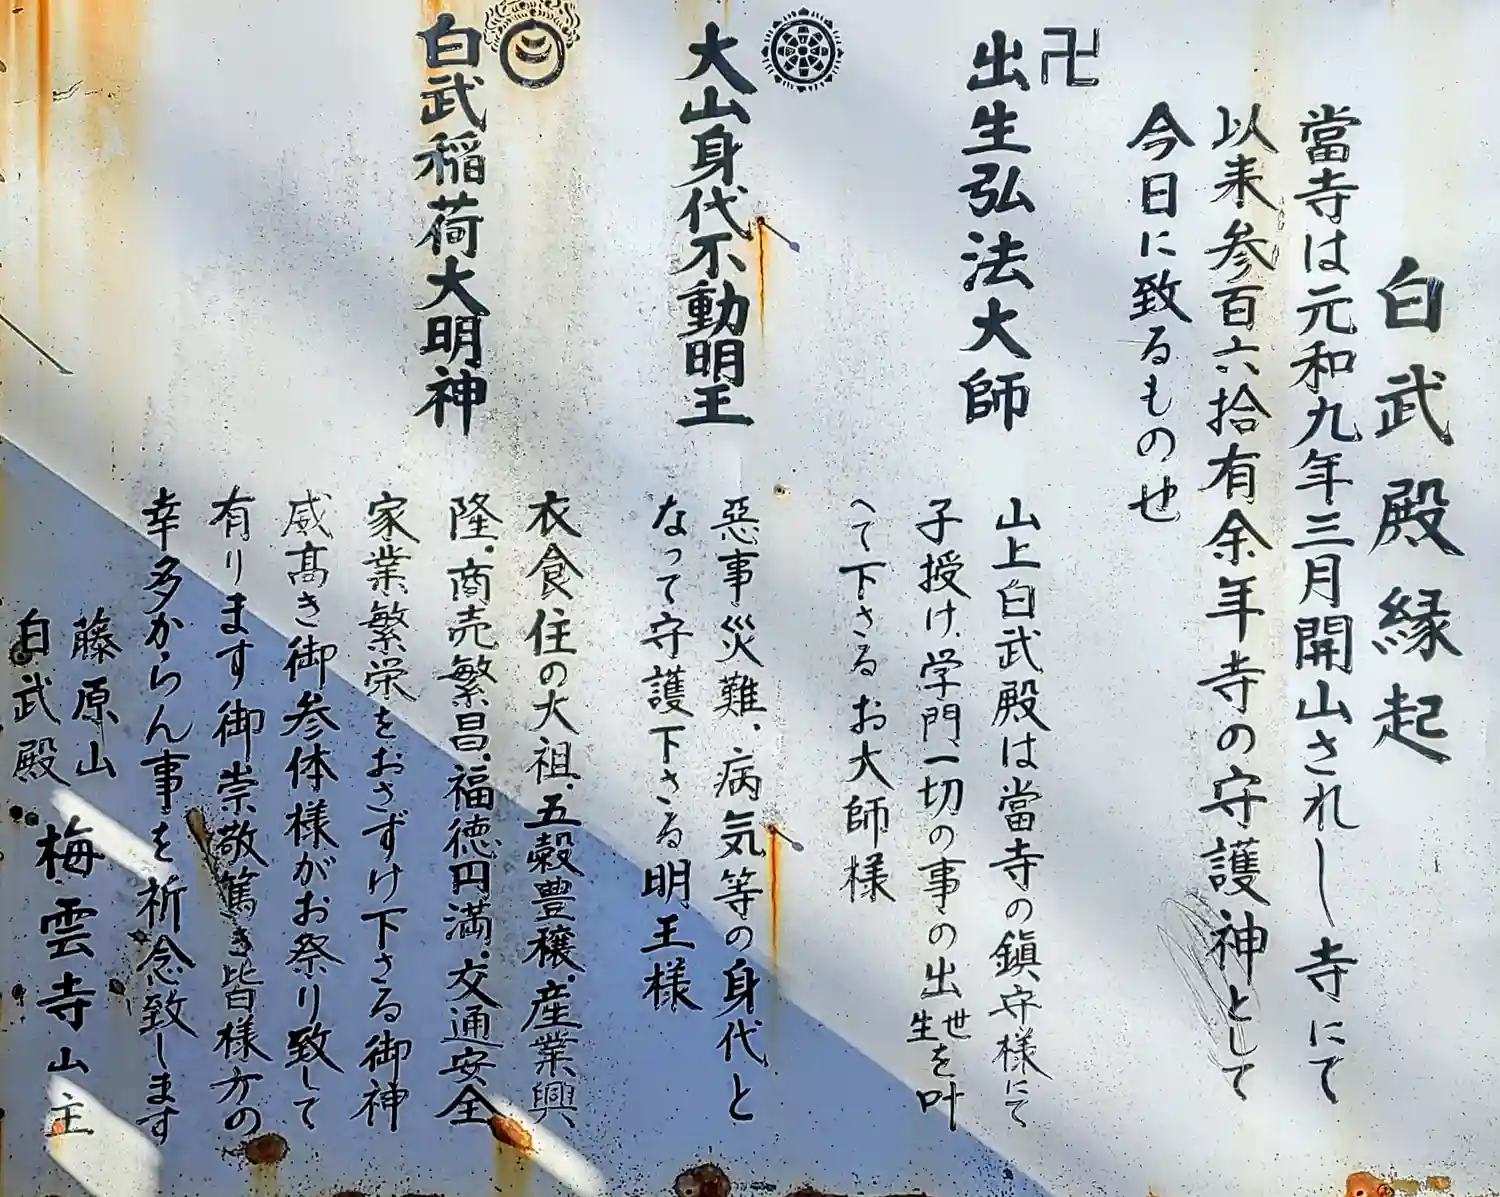 白武殿縁起
當寺は元和九年三月開山されし寺にて
以来参百六拾有余年寺の守護神として
今日に致るもの也
卍
出生弘法大師
山上白武殿は當寺の鎮守様にて
子授け、学門一切の事の出世生を叶
へて下さるお大師様
大山身代不動明王
惡事災難、病気等の身代と
なって守護下さる明王様
白武稲荷大明神
衣食住の大祖、五穀豊穣、産業興
隆、商売繁昌、福徳円満、交通安全
家業繁栄をおさずけ下さる御神
威高き御参体様がお祭り致して
有ります御崇敬篤き皆様方の
幸多からん事を祈念致します
藤原山
白武殿
梅雲寺山主